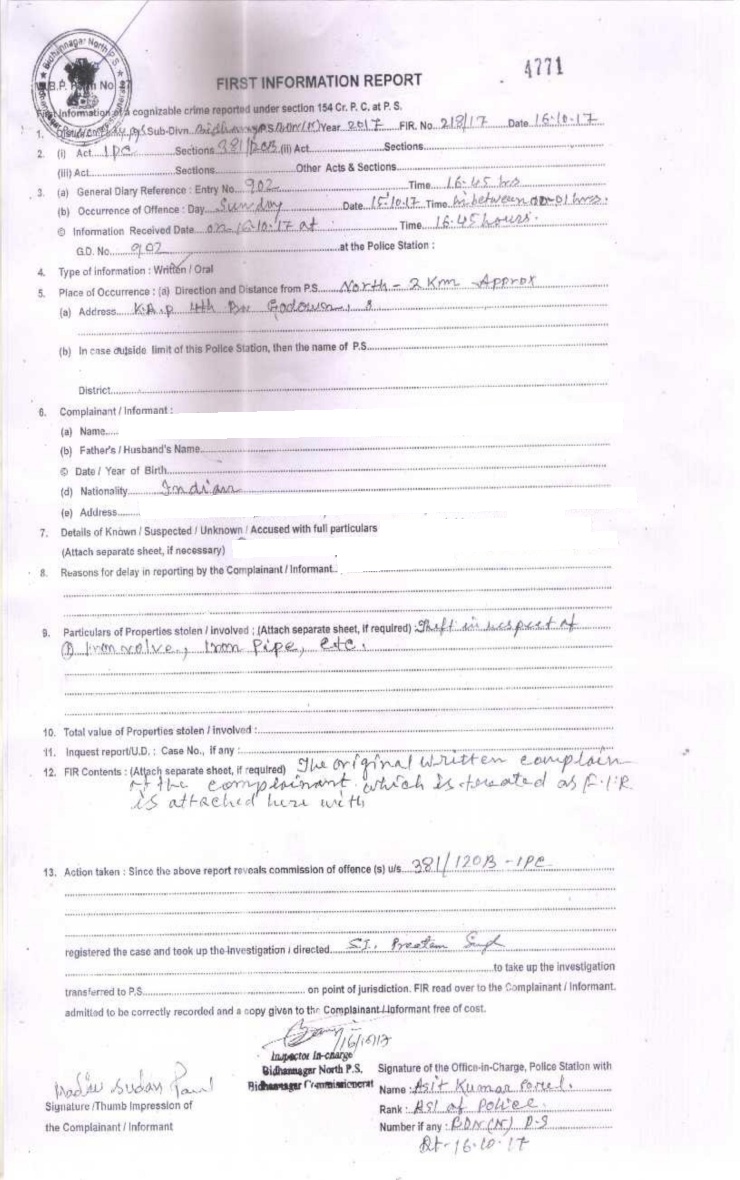 4771
Bidhannagar North P.S.
FIRST INFORMATION REPORT
First Information of a cognizable crime reported under section 154 Cr. P. C. at P. S.
1. Sub-Divn. P.S. BDN(N) Year 2017 FIR. No. 218/17 Date 16.10.17
2. (i) Act IPC Sections 381/120B (ii) Act Sections
(iii) Act Sections Other Acts & Sections
3. (a) General Diary Reference : Entry No. 902 Time 16.45 hrs
(b) Occurrence of Offence : Day Sunday Date 15.10.17 Time in between 01 hrs.
© Information Received Date on 16.10.17 at Time 16.45 hours.
G.D. No. 902 at the Police Station :
4. Type of information : Written / Oral
5. Place of Occurrence : (a) Direction and Distance from P.S. North - 2 Km Approx
(a) Address K.A.P 4th Bn Godown
(b) In case outside limit of this Police Station, then the name of P.S.
District
6. Complainant / Informant :
(a) Name
(b) Father's / Husband's Name
© Date / Year of Birth
(d) Nationality Indian
(e) Address
7. Details of Known / Suspected / Unknown / Accused with full particulars
(Attach separate sheet, if necessary)
8. Reasons for delay in reporting by the Complainant / Informant
9. Particulars of Properties stolen / involved ; (Attach separate sheet, if required) Theft in respect of
① Iron valve, Iron Pipe, etc.
10. Total value of Properties stolen / involved :
11. Inquest report/U.D. : Case No., if any :
12. FIR Contents : (Attach separate sheet, if required) The original written complain
of the complainant which is treated as F.I.R
is attached here with
13. Action taken : Since the above report reveals commission of offence (s) u/s 381/120B - IPC
registered the case and took up the investigation / directed S.I. Preetam Singh
to take up the investigation
transferred to P.S. on point of jurisdiction. FIR read over to the Complainant / Informant.
admitted to be correctly recorded and a copy given to the Complainant / Informant free of cost.
16/10/17
Inspector In-charge
Bidhannagar North P.S.
Bidhannagar Commissionerat
Signature of the Office-in-Charge, Police Station with
Name : Asit Kumar Porel.
Rank : ASI of Police.
Number if any : BDN(N) P.S
Dt-16.10.17
Madhu Sudan Paul
Signature /Thumb Impression of
the Complainant / Informant